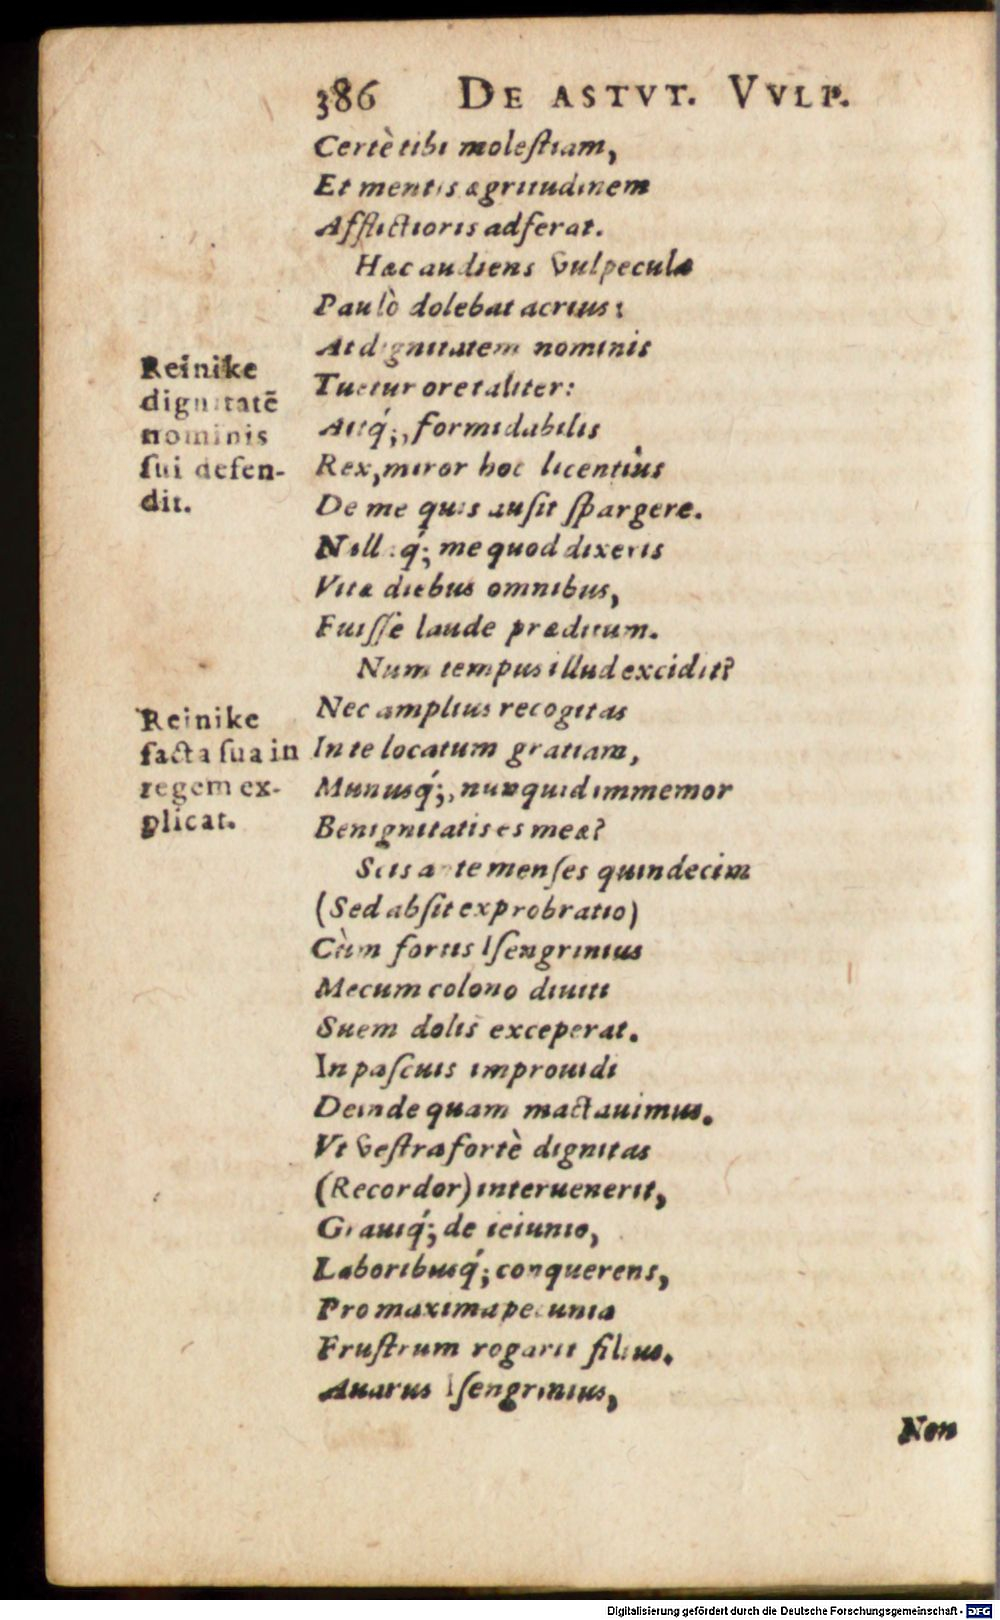 386 DE ASTVT. VVLP.
Certè tibi molestiam,
Et mentis ægritudinem
Afflictioris adferat.
Hæc audiens vulpecula
Paulò dolebat acrius:
At dignitatem nominis
Tuetur ore taliter:
Atq́;, formidabilis
Rex, miror hoc licentius
De me quis ausit spargere.
Nullaq́; me quod dixeris
Vitæ diebus omnibus,
Fuisse laude præditum.
Num tempus illud excidit?
Nec amplius recogitas
In te locatum gratiam,
Munusq́;, nunquid immemor
Benignitatis es meæ?
Scis ante menses quindecim
(Sed absit exprobratio)
Cùm fortis Isengrinius
Mecum colono diuiti
Suem dolis exceperat.
In pascuis improuidi
Deinde quam mactauimus.
Vt vestra fortè dignitas
(Recordor) interuenerit,
Grauiq́; de ieiunio,
Laboribusq́; conquerens,
Pro maxima pecunia
Frustrum rogarit filius.
Auarus Isengrinius,
Non
Reinike
dignitatē
nominis
sui defen-
dit.
Reinike
facta sua in
regem ex-
plicat.
Digitalisierung gefördert durch die Deutsche Forschungsgemeinschaft - DFG